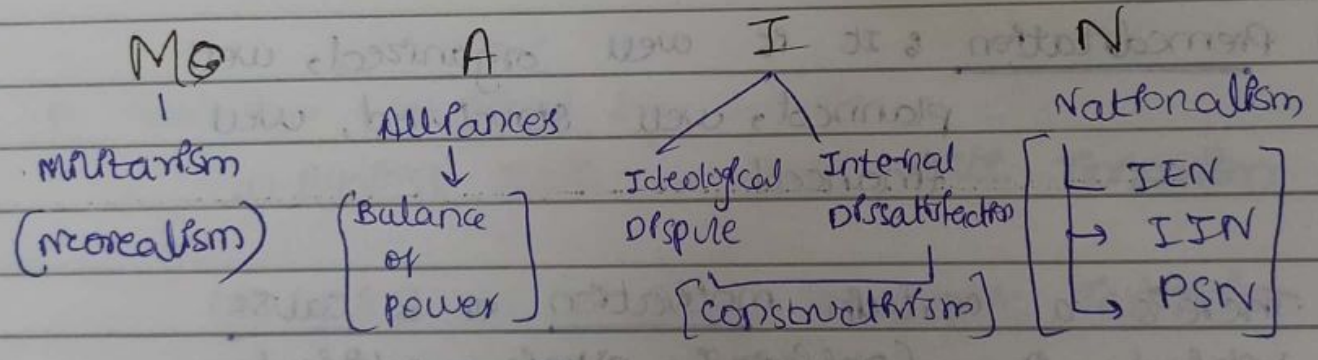 M A I N
Militarism
(neorealism)
Alliances
[Balance
of
power]
Ideological
Dispute
Internal
Dissatisfaction
[constructivism]
Nationalism
IEN
IIN
PSN